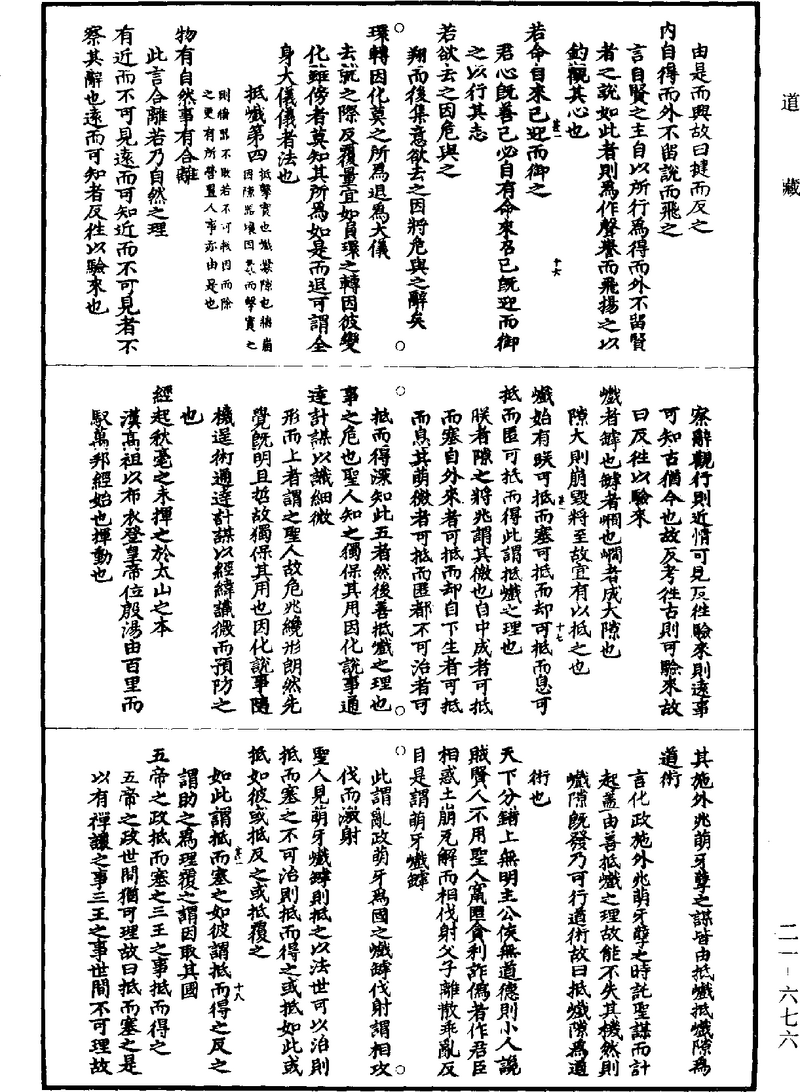 道藏
二一-六七六
由是而興故曰揵而反之
內自得而外不留說而飛之
言自賢之主自以所行爲得而外不留賢
者之說如此者則爲作聲譽而飛揚之以
釣觀其心也
若命自來已迎而御之
君心既善己必自有命來召已既迎而御
之以行其志
若欲去之因危與之
翔而後集意欲去之因將危與之辭矣
環轉因化莫之所爲退爲大儀
去就之際反覆量宜如員環之轉因彼變
化雖傍者莫知其所爲如是而退可謂全
身大儀儀者法也
抵巇第四
抵擊實也巇釁隙也牆崩
因隙器壞因釁而擊實之
則牆器不敗若不可救因而除
之更有所營置人事亦由是也
物有自然事有合離
此言合離若乃自然之理
有近而不可見遠而可知近而不可見者不
察其辭也遠而可知者反往以驗來也
十六
察辭觀行則近情可見反往驗來則遠事
可知古猶今也故反考往古則可驗來故
曰反往以驗來
巇者罅也罅者㵎也㵎者成大隙也
隙大則崩毀將至故宜有以抵之也
十七
巇始有朕可抵而塞可抵而却可抵而息可
抵而匿可抵而得此謂抵巇之理也
朕者隙之將兆謂其微也自中成者可抵
而塞自外來者可抵而却自下生者可抵
而息其萌微者可抵而匿都不可治者可
抵而得深知此五者然後善抵巇之理也
事之危也聖人知之獨保其用因化說事通
達計謀以識細微
形而上者謂之聖人故危兆纔形朗然先
覺既明且哲故獨保其用也因化說事隨
機逞術通達計謀以經緯識微而預防之
也
經起秋毫之末揮之於太山之本
漢高祖以布衣登皇帝位殷湯由百里而
馭萬邦經始也揮動也
其施外兆萌牙孽之謀皆由抵巇抵巇隙爲
道術
言化政施外兆萌牙孽之時託聖謀而計
起蓋由善抵巇之理故能不失其機然則
巇隙既發乃可行道術故曰抵巇隙爲道
術也
天下分錯上無明主公侯無道德則小人讒
賊賢人不用聖人竄匿貪利詐僞者作君臣
相惑土崩瓦解而相伐射父子離散乖亂反
目是謂萌牙巇罅
此謂亂政萌牙爲國之巇罅伐射謂相攻
伐而激射
聖人見萌牙巇罅則抵之以法世可以治則
抵而塞之不可治則抵而得之或抵如此或
抵如彼或抵反之或抵覆之
如此謂抵而塞之如彼謂抵而得之反之
謂助之爲理覆之謂因取其國
十八
五帝之政抵而塞之三王之事抵而得之
五帝之政世間猶可理故曰抵而塞之是
以有禪讓之事三王之事世間不可理故